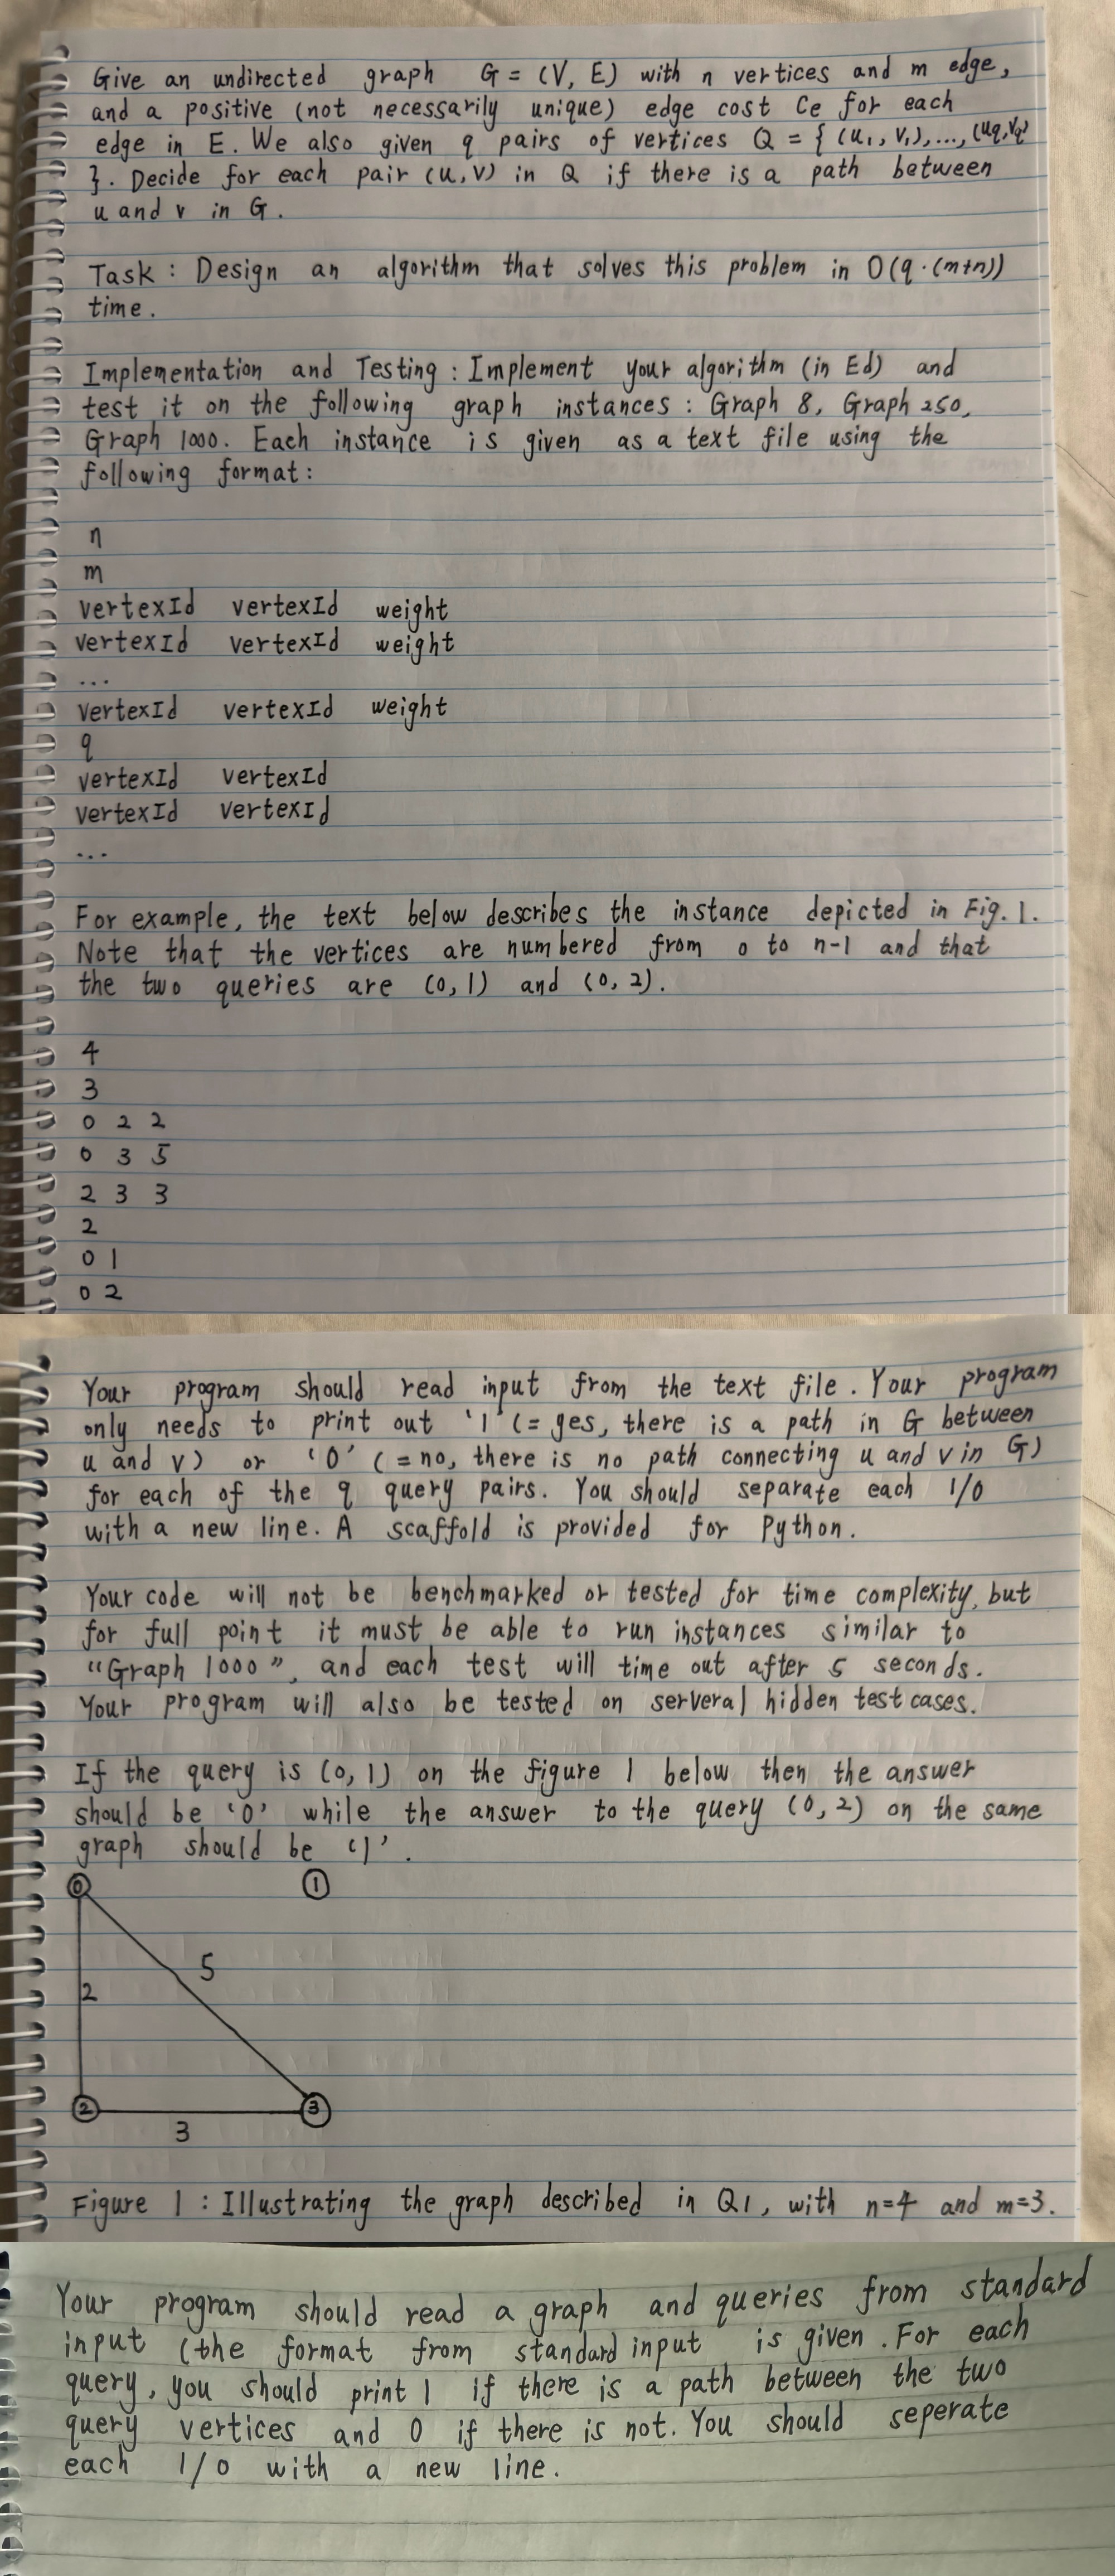 Give an undirected graph G = (V, E) with n vertices and m edge,
and a positive (not necessarily unique) edge cost Ce for each
edge in E. We also given q pairs of vertices Q = { (u1, v1),..., (uq,vq)
}. Decide for each pair (u,v) in Q if there is a path between
u and v in G.
Task : Design an algorithm that solves this problem in O(q·(m+n))
time.
Implementation and Testing : Implement your algorithm (in Ed) and
test it on the following graph instances : Graph 8, Graph 250,
Graph 1000. Each instance is given as a text file using the
following format :
n
m
vertexId vertexId weight
vertexId vertexId weight
...
vertexId vertexId weight
q
vertexId vertexId
vertexId vertexId
...
For example, the text below describes the instance depicted in Fig. 1.
Note that the vertices are numbered from 0 to n-1 and that
the two queries are (0,1) and (0,2).
4
3
0 2 2
0 3 5
2 3 3
2
0 1
0 2
Your program should read input from the text file. Your program
only needs to print out '1' (= ges, there is a path in G between
u and v) or '0' (= no, there is no path connecting u and v in G)
for each of the q query pairs. You should separate each 1/0
with a new line. A scaffold is provided for Python.
Your code will not be benchmarked or tested for time complexity, but
for full point it must be able to run instances similar to
"Graph 1000", and each test will time out after 5 seconds.
Your program will also be tested on serveral hidden test cases.
If the query is (0,1) on the figure 1 below then the answer
should be '0' while the answer to the query (0,2) on the same
graph should be '1'.
0 1
5
2
2 3
3
Figure 1 : Illustrating the graph described in Q1, with n=4 and m=3.
Your program should read a graph and queries from standard
input (the format from standard input is given. For each
query, you should print 1 if there is a path between the two
query vertices and 0 if there is not. You should seperate
each 1/0 with a new line.